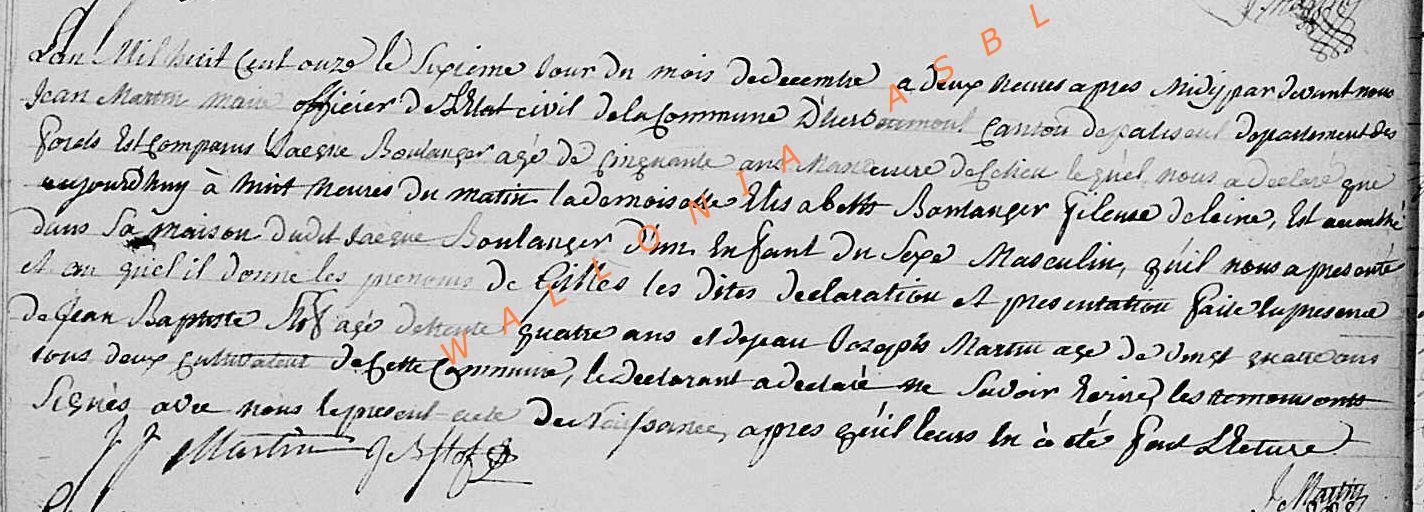 Lan Mil huit Cent onze le Sixième Jour du mois de decembre a deux heures apres Midy par devant nous
Jean Martin maire officier de L'Etat civil de la Commune D'herbeumont Canton de paliseul departement des
forets Est Comparus Jacque Boulanger agé de Cinquante ans Manoeuvre le quel nous a declaré que
aujourdhuy à huit heures du matin la demoiselle Elisabeth Boulanger fileuse de laine, Est accouché
dans Sa maison dudit Jacque Boulanger D'un Enfant du Sexe Masculin, qu'il nous a presenté
et au quel il donne les prenoms de Gilles les dites declaration et presentation faite En presence
de Jean Baptiste agé de trente quatre ans et de Jean Joseph Martin age de vingt quatre ans
tous deux cultivateur de Cette Commune, le declarant a declaré ne Savoir Ecrire, les temoins onts
Signés avec nous le present acte de Naissance, apres qu'il leurs En à été fait Lecture
J J Martin J B J Martin
WALLONIA ASBL